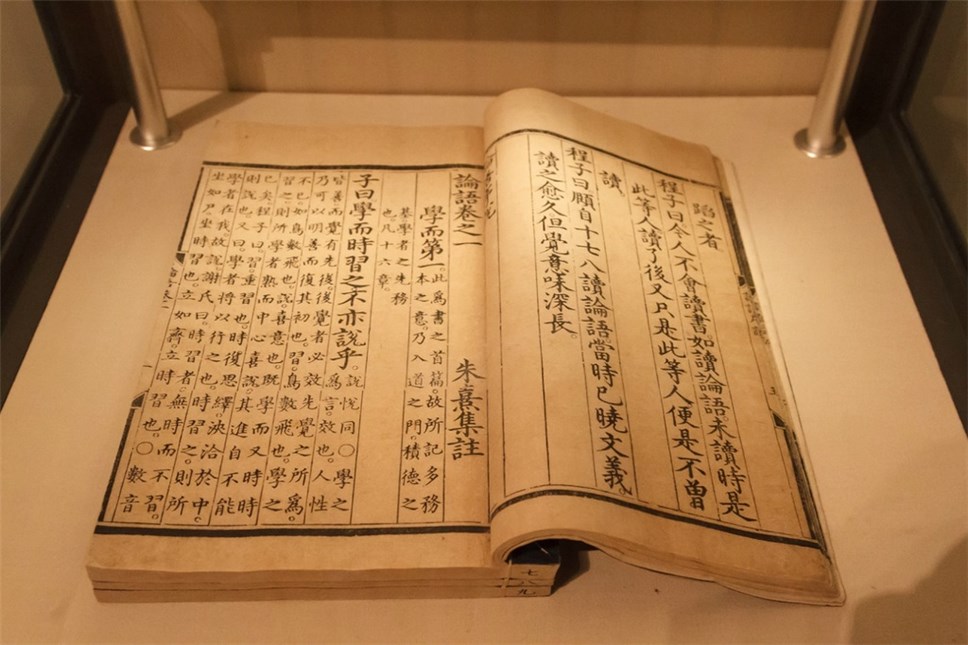 蹈之者
程子曰今人不會讀書如讀論語未讀時是
此等人讀了後又只是此等人便是不曾
讀。
程子曰頤自十七八讀論語當時已曉文義。
讀之愈久但覺意味深長。
論語卷之一 朱熹集註
學而第一
此爲書之首篇。故所記多務
本之意。乃入道之門。積德之
基。學者之先務
也。凡十六章。
子曰學而時習之不亦說乎。
說悅同○學之
爲言。效也。人性
皆善而覺有先後。後覺者必效先覺之所爲。
乃可以明善而復其初也。習鳥數飛也。學之
不已如鳥數飛也。說喜意也。既學而又時時
習之則所學者熟而中心喜說其進自不能
已矣。程子曰。習重習也。時復思繹。浹洽於中。
則說也。又曰。學者將以行之也。時習之。則所
學者在我。故說。謝氏曰。時習者。無時而不習。
坐如尸。坐時習也。立如齊。立時習也。○數音
七
八
九